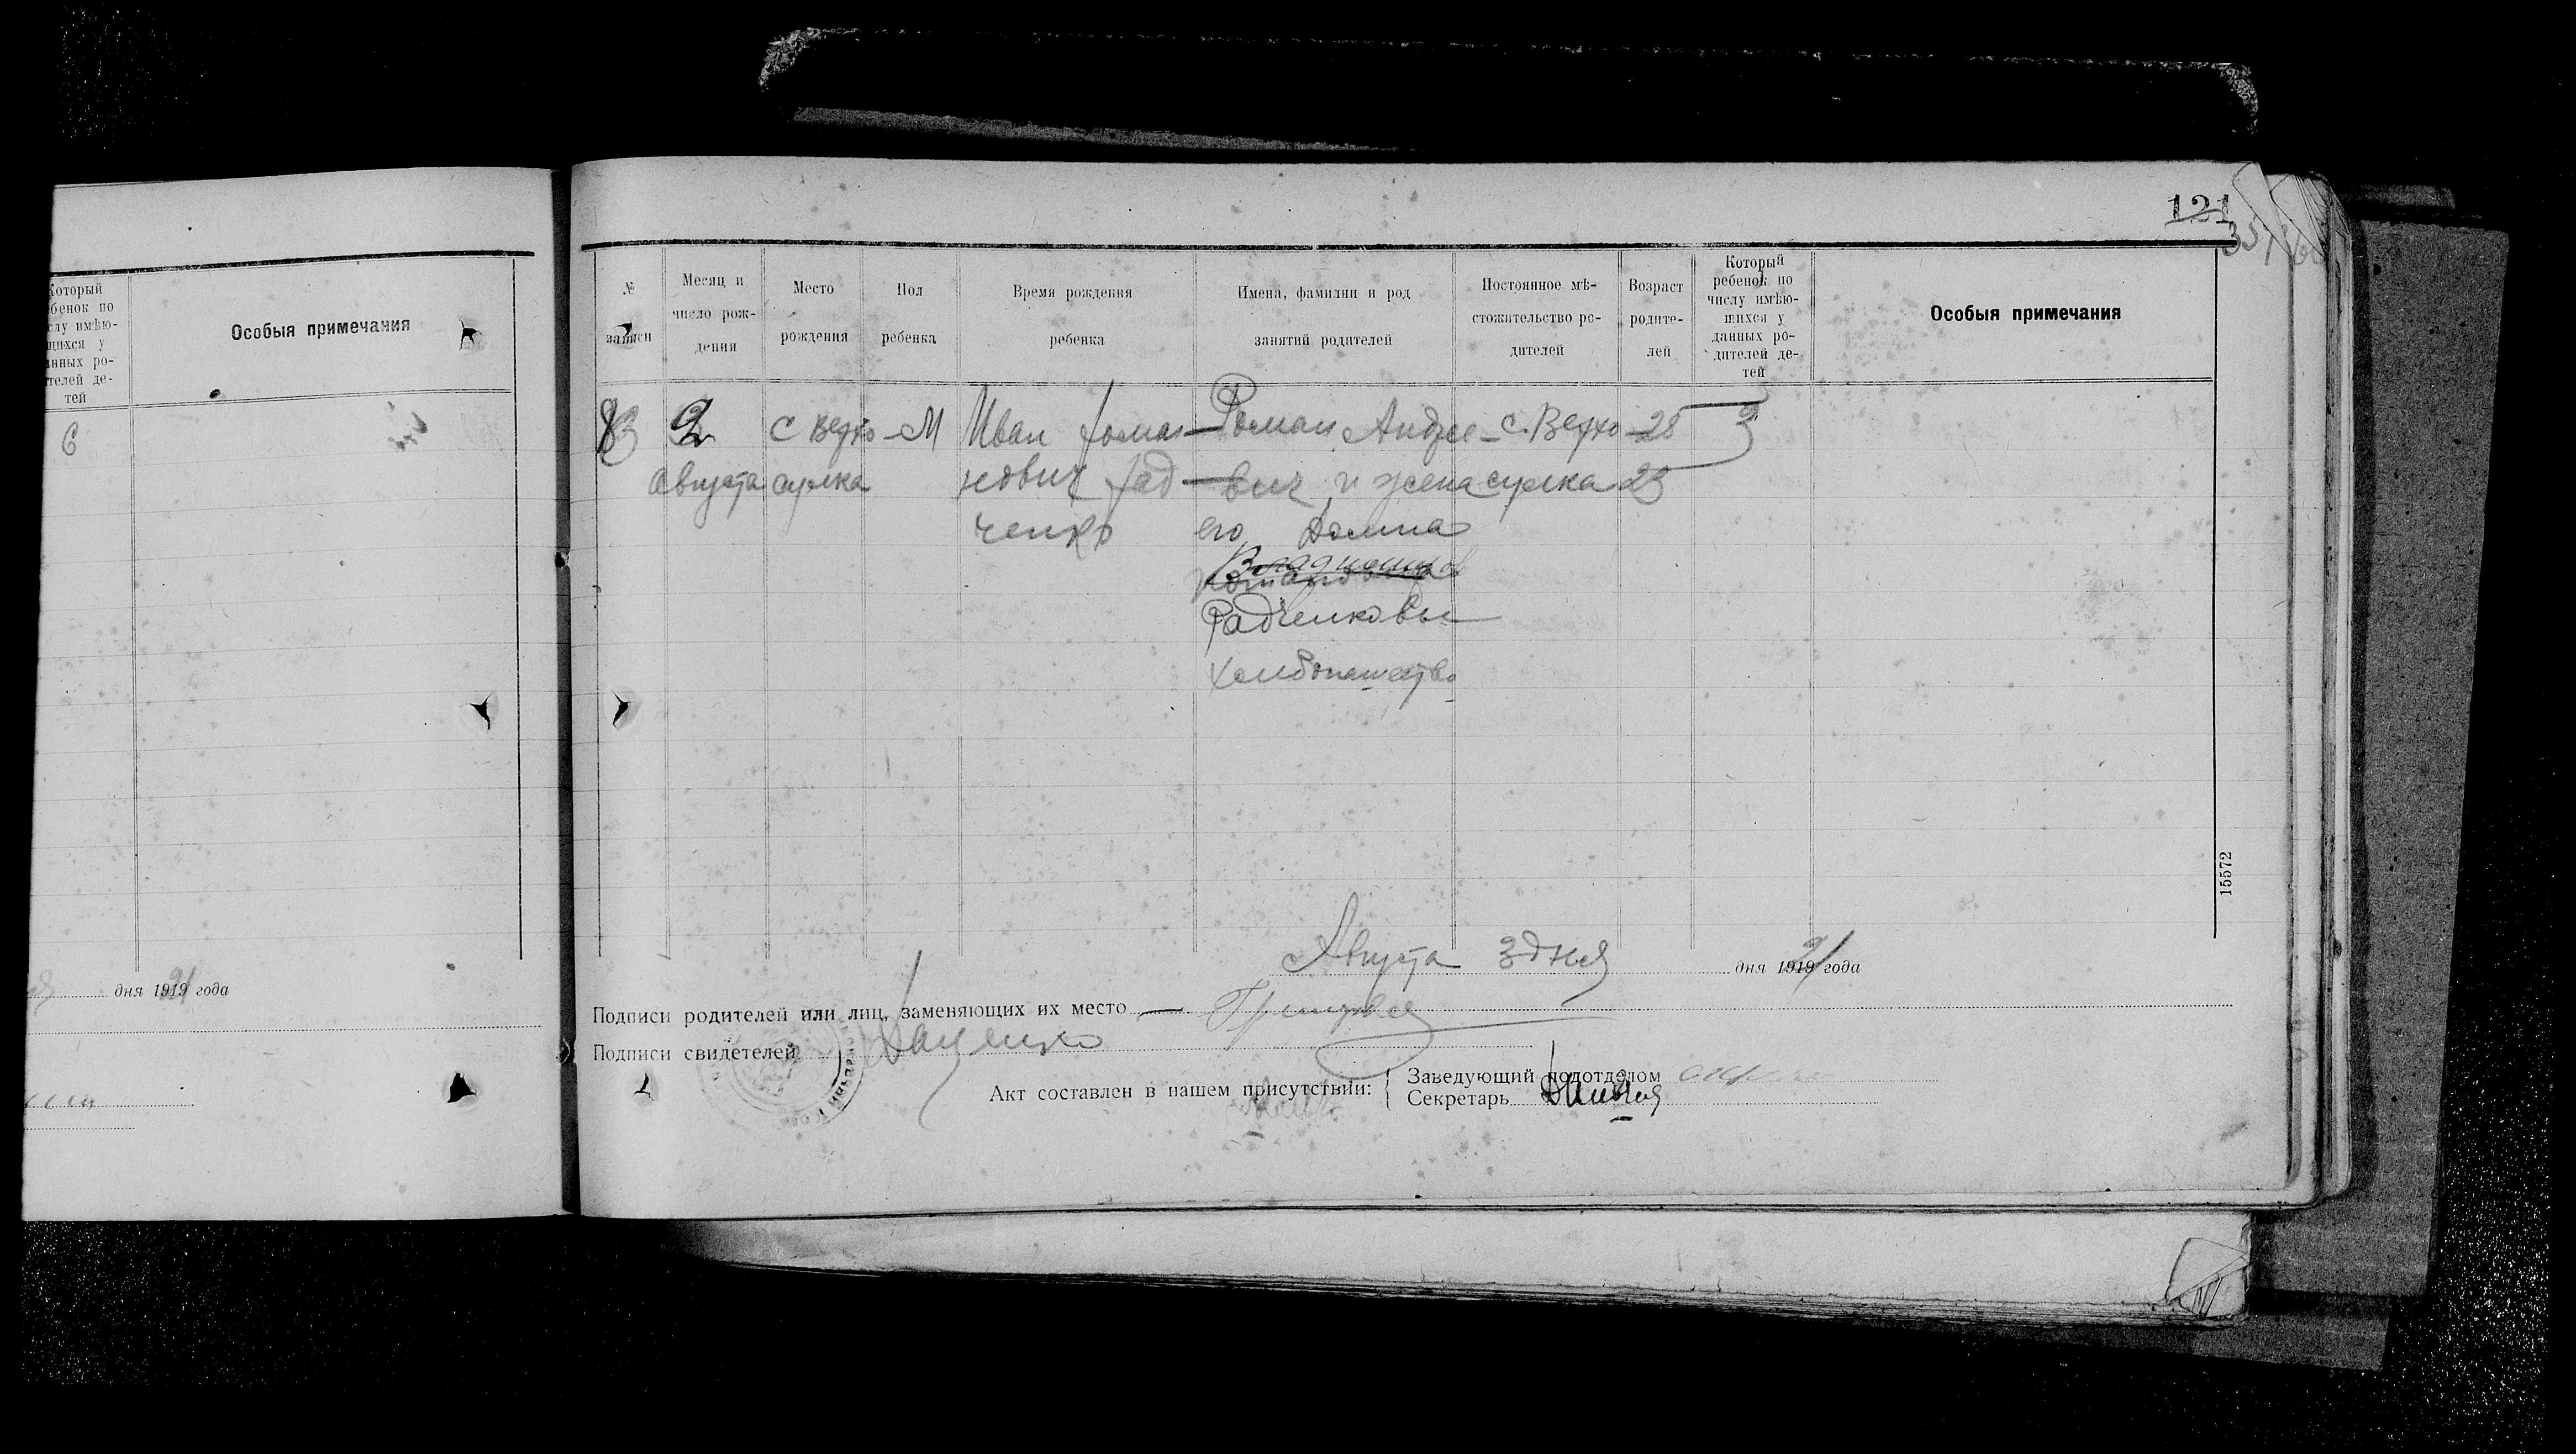 121
Который
ребенок по
числу имѣю-
щихся у
данных ро-
дителей де-
тей
Особыя примечания
6
дня 1919 21 года
№ записи
Месяц и число рож- дения
Место рождения
Пол ребенка
Время рождения ребенка
Имена, фамилии и род занятий родителей
Постоянное мѣ- стожительство ро- дителей
Возраст родите- лей
Который ребенок по числу имѣю- щихся у данных ро- дителей де- тей
Особыя примечания
83 2 с Верхо- М Иван Рома- Роман Андрее- с. Верхо- 28 3
августа сулка нович Рад- вич и жена сулка 23
ченко его Домна
Радченковы
хлебопашество
15572
Августа 3 дня дня 1919 21 года
Подписи родителей или лиц, заменяющих их место
Подписи свидетелей Даценко
Акт составлен в нашем присутствии:
Заведующий подотделом
Секретарь